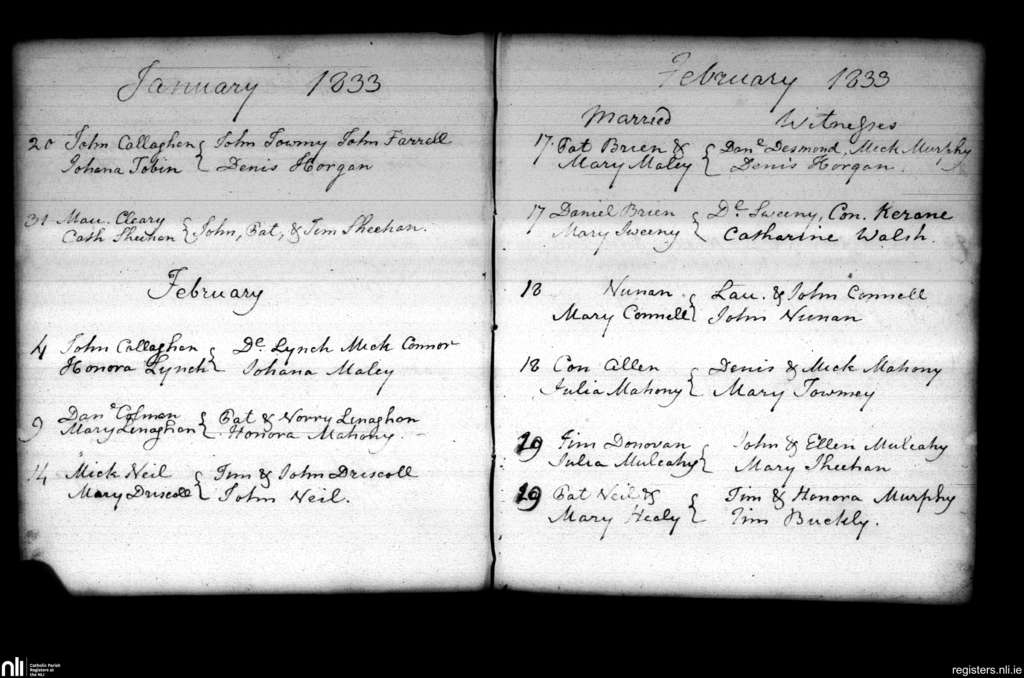 January 1833
20 John Callaghan { John Towmy John Farrell
Johana Tobin { Denis Horgan
31 Mau. Cleary
Cath Sheehan { John, Pat, & Tim Sheehan.
February
4 John Callaghan { De. Lynch Mick Connor
Honora Lynch { Johana Maley
9 Danl Colman { Pat & Norry Linaghan
Mary Linaghan { Honora Mahony.
14 Mick Neil { Tim & John Driscoll
Mary Driscoll { John Neil.
February 1833
Married Witnesses
17. Pat Brien & { Danl Desmond, Mick Murphy
Mary Maley { Denis Horgan.
17 Daniel Brien { De Sweeny, Con. Kerane
Mary Sweeny { Catharine Walsh.
18 Nunan { Lau. & John Connell
Mary Connell { John Nunan
18 Con Allen { Denis & Mick Mahony
Julia Mahony { Mary Towmey
19 Tim Donovan { John & Ellen Mulcahy
Julia Mulcahy { Mary Sheehan
19 Pat Neil & { Tim & Honora Murphy
Mary Healy { Tim Buckly.
nli
Catholic Parish
Registers at
the NLI
registers.nli.ie